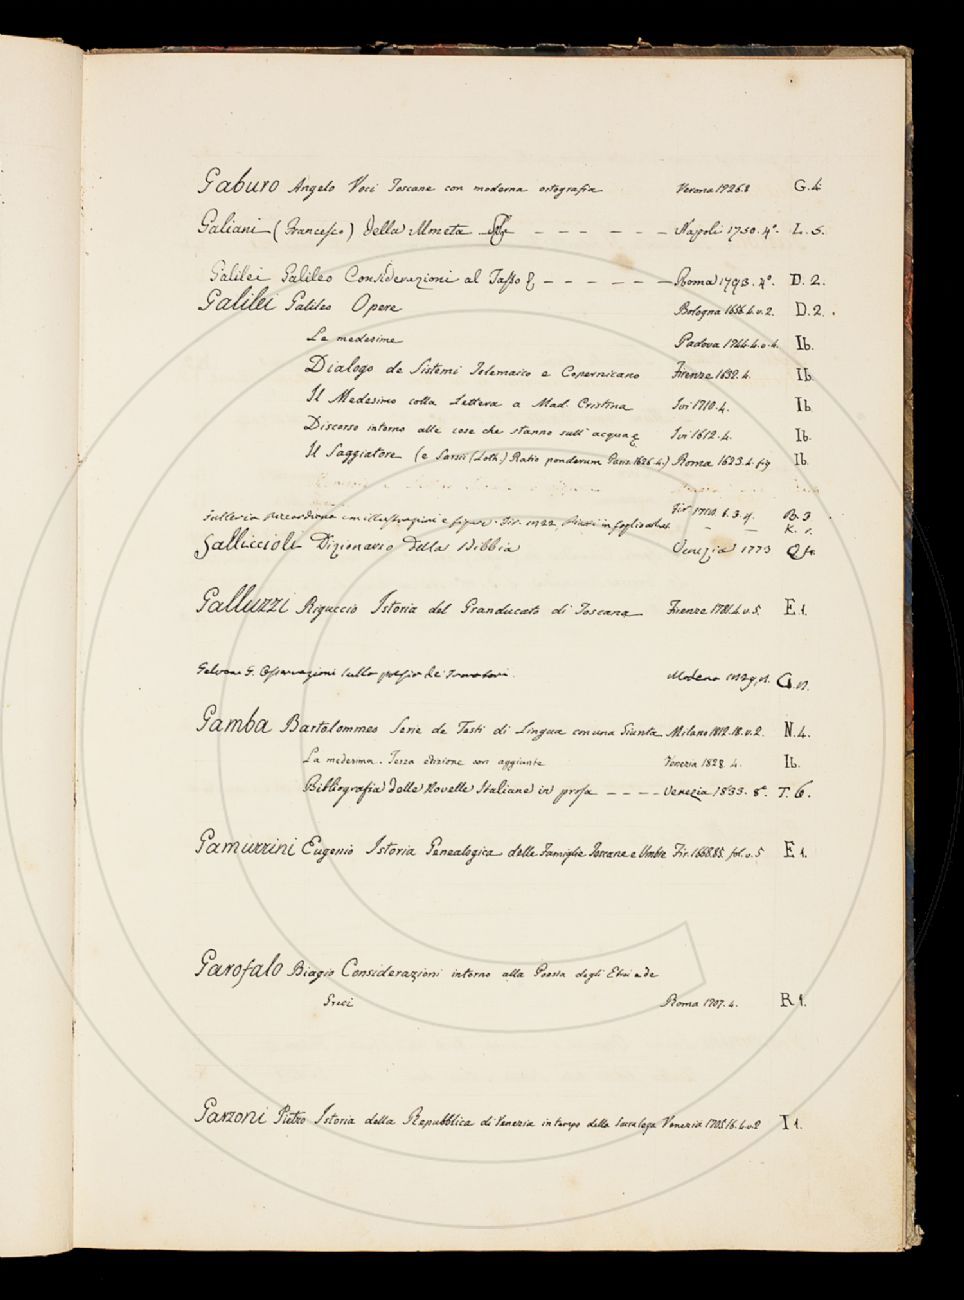 Gaburo Angelo Voci Toscane con moderna ortografia Verona 1726.8 G. 4.
Galiani (Francesco) Della Moneta - - - - - - - Napoli 1750. 4°. L. 5.
Galilei Galileo Considerazioni al Tasso - - - - - - Roma 1793. 4°. D. 2.
Galilei Galileo Opere Bologna 1656.4.v.2. D. 2.
Le medesime Padova 1744.4.v.4. Ib.
Dialogo de Sistemi Tolemaico e Copernicano Firenze 1632. 4. Ib.
Il Medesimo colla Lettera a Mad. Cristina Ivi 1710. 4. Ib
Discorso intorno alle cose che stanno sull' acqua Ivi 1612. 4. Ib.
Il Saggiatore (e Sarsii (Loth.) Ratio ponderum Paris 1626.4.) Roma 1623.4. fig Ib.
Galleria Riccardiana con illustrazioni e figure. Fir. in foglio B. 3
K. 1.
Galliccioli Dizionario della Bibbia Venezia 1773
Galluzzi Riguccio Istoria del Granducato di Toscana Firenze 1781.4.v.5. E 1.
Galvani G. Osservazioni sulla poesia de' Trovatori. Modena G.
Gamba Bartolommeo Serie de Testi di Lingua con una Giunta Milano 1812.18.v.2. N. 4.
La medesima. Terza edizione con aggiunte Venezia 1828. 4. Ib.
Bibliografia delle Novelle Italiane in prosa - - - - Venezia 1833. 8°. T. 6.
Gamurrini Eugenio Istoria Genealogica delle Famiglie Toscane e Umbre Fir. 1668.85. fol. v. 5 E 1.
Garofalo Biagio Considerazioni intorno alla Poesia degli Ebrei e de
Greci Roma 1707. 4. R 1.
Garzoni Pietro Istoria della Repubblica di Venezia in tempo della Sacra lega Venezia 1705.16.4.v.2 I 1.